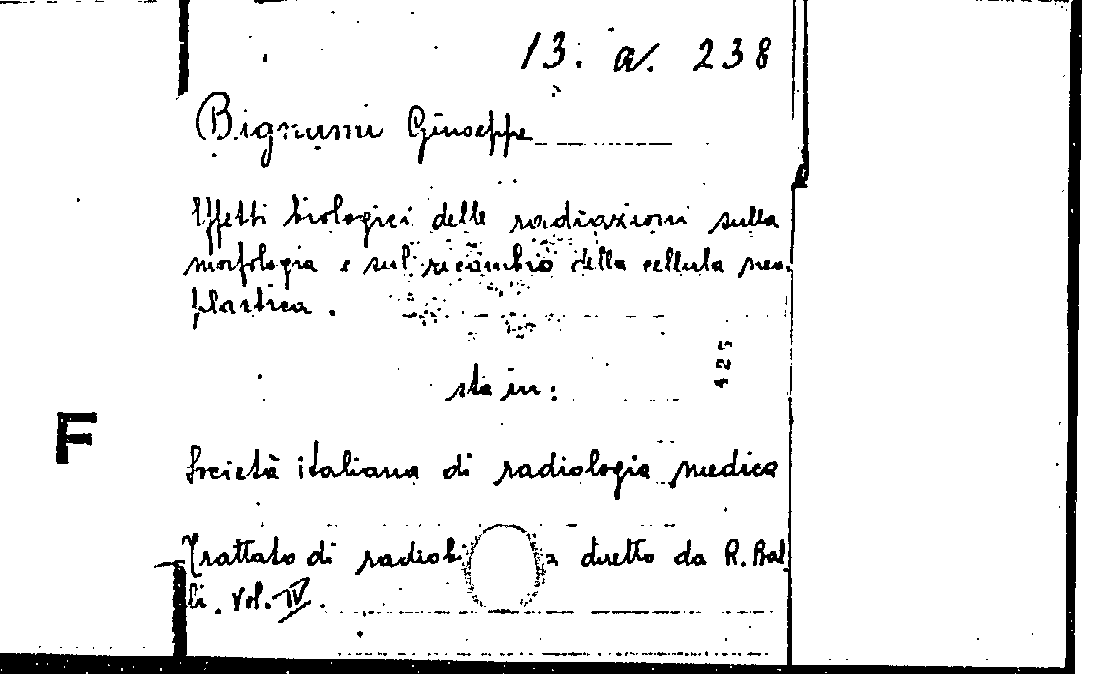 13. a. 238
Bignami Giuseppe
Effetti biologici delle radiazioni sulla
morfologia e sul ricambio della cellula neo-
plastica.
425
sta in:
F
Società italiana di radiologia medica
Trattato di radiobi a diretto da R. Bal
li. Vol. IV.